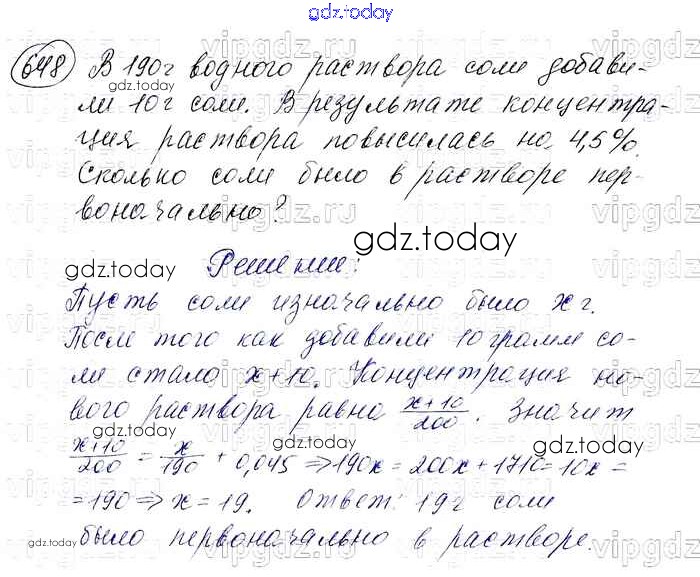 gdz.today
648 В 190 г водного раствора соли добави-
ли 10 г соли. В результате концентра-
ция раствора повысилась на 4,5%.
Сколько соли было в растворе пер-
воначально?
Решение:
Пусть соли изначально было x г.
После того как добавили 10 грамм со-
ли стало x+10. Концентрация но-
вого раствора равна (x+10)/200. Значит
(x+10)/200 = x/190 + 0,045 ⇒ 190x = 200x + 1710 = 10x =
= 190 ⇒ x = 19. Ответ: 19 г соли
было первоначально в растворе.
gdz.today
gdz.today
gdz.today
gdz.today
gdz.today
gdz.today
vipgdz.ru